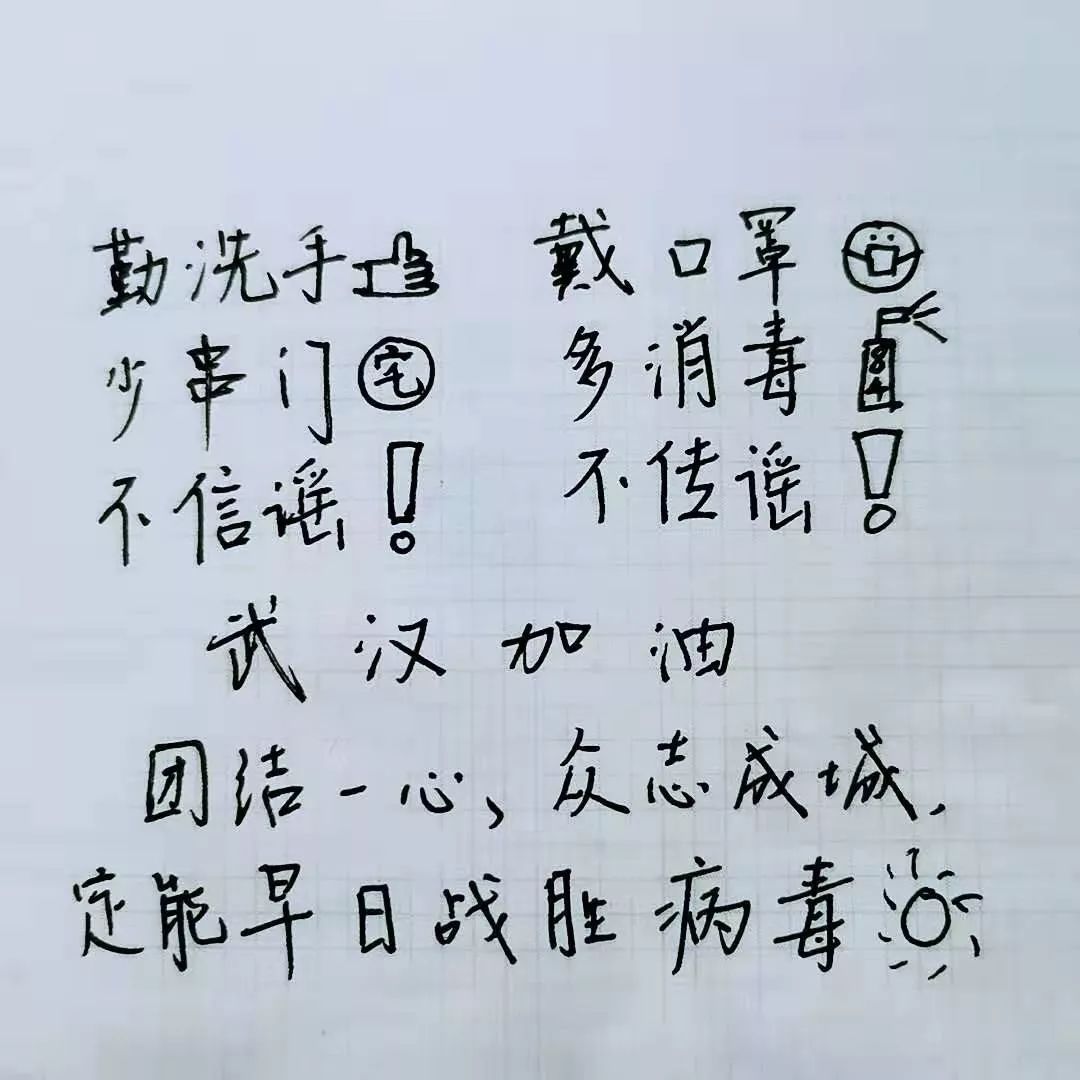 勤洗手 戴口罩
少串门 宅 多消毒 84
不信谣！ 不传谣！
武汉加油
团结一心，众志成城，
定能早日战胜病毒